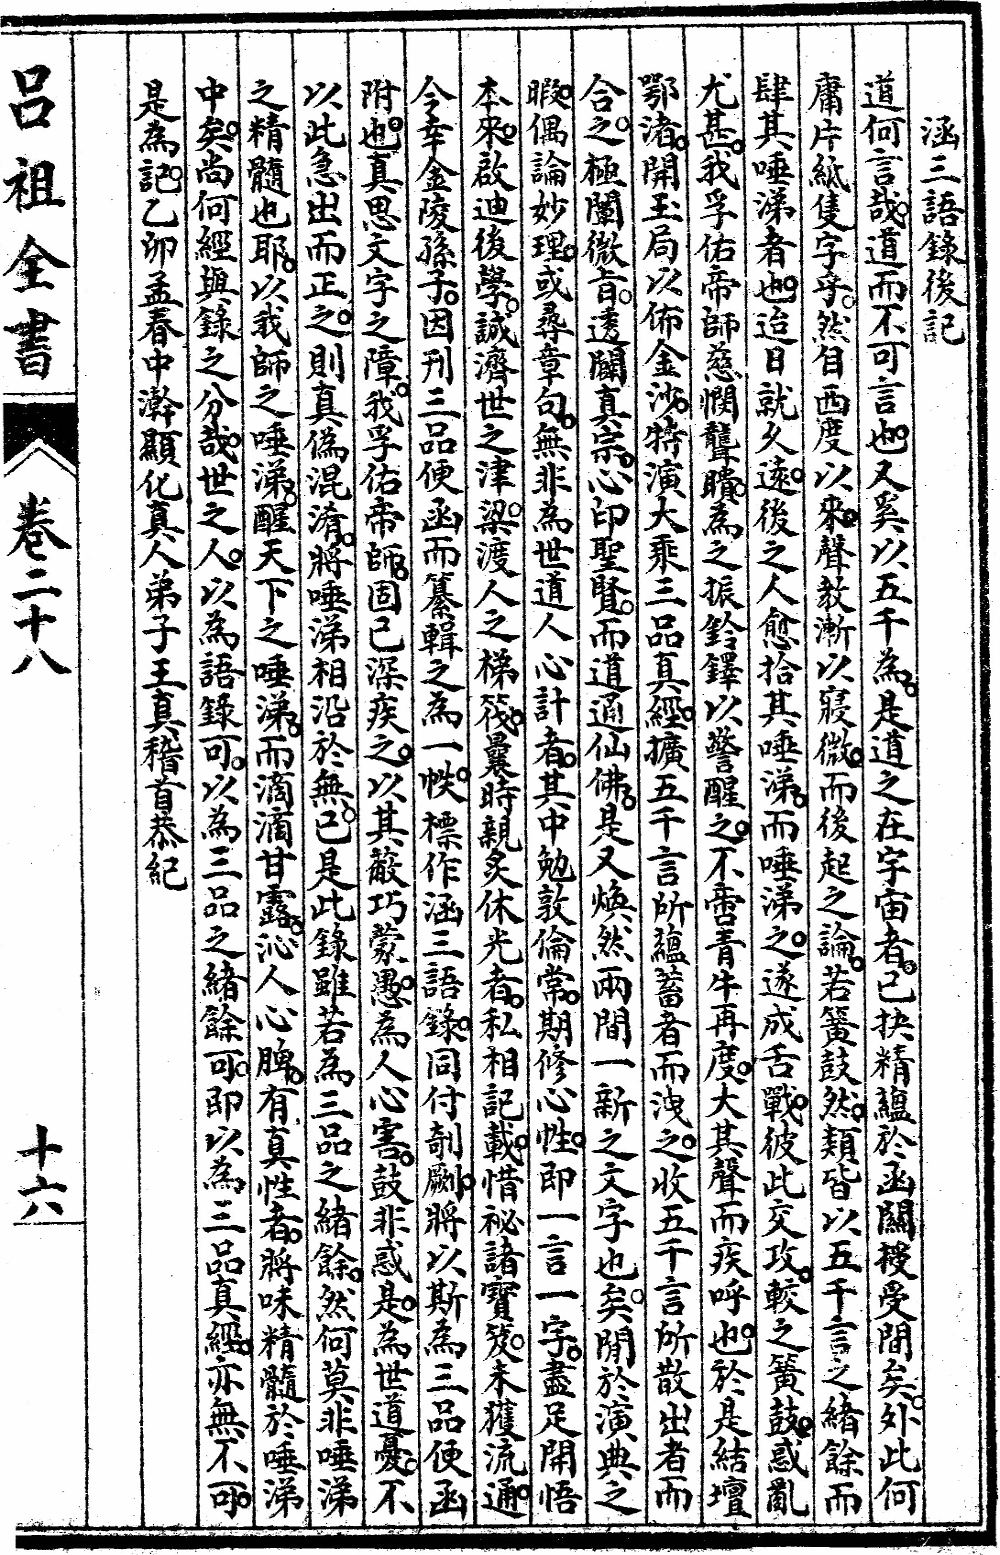 涵三語錄後記
道何言哉。道而不可言也。又奚以五千為。是道之在宇宙者。已抉精蘊於函關授受間矣。外此何
庸片紙隻字乎。然自西度以來。聲教漸以寢微。而後起之論。若簧鼓然。類皆以五千言之緒餘而
肆其唾涕者也。迨日就久遠。後之人愈拾其唾涕。而唾涕之。遂成舌戰。彼此交攻。較之簧鼓。惑亂
尤甚。我孚佑帝師。慈憫聾瞶。為之振鈴鐸以警醒之。不啻青牛再度。大其聲而疾呼也。於是結壇
鄂渚。開玉局以佈金沙。特演大乘三品真經。擴五千言所蘊蓄者而洩之。收五千言所散出者而
合之。極闡微旨。透闢真宗。心印聖賢。而道通仙佛。是又煥然兩間一新之文字也矣。閒於演典之
暇。偶論妙理。或尋章句。無非為世道人心計者。其中勉敦倫常。期修心性。即一言一字。盡足開悟
本來。啟迪後學。誠濟世之津梁。渡人之梯筏。曩時親炙休光者。私相記載。惜祕諸寶笈。未獲流通。
今幸金陵孫子。因刊三品便函而纂輯之為一帙。標作涵三語錄。同付剞劂。將以斯為三品便函
附也。真思文字之障。我孚佑帝師。固已深疾之。以其蔽巧蒙愚。為人心害。鼓非惑是。為世道憂。不
以此急出而正之。則真偽混淆。將唾涕相沿於無已。是此錄雖若為三品之緒餘。然何莫非唾涕
之精髓也耶。以我師之唾涕。醒天下之唾涕。而滴滴甘露。沁人心脾。有真性者。將味精髓於唾涕
中矣。尚何經與錄之分哉。世之人。以為語錄可。以為三品之緒餘可。即以為三品真經。亦無不可。
是為記。乙卯孟春中澣顯化真人弟子王真稽首恭紀
呂祖全書
卷二十八
十六